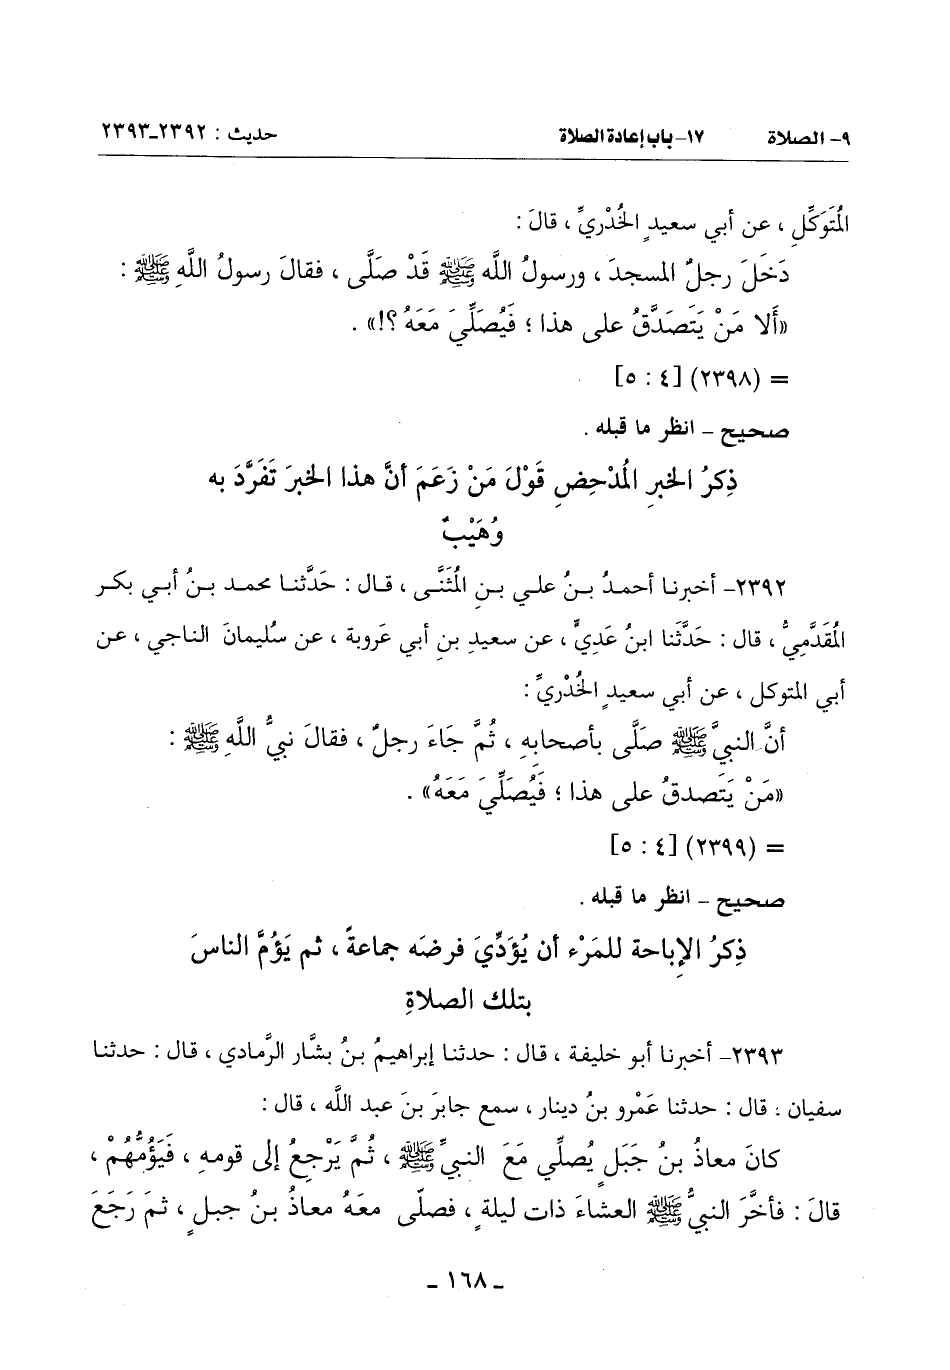 ٩- الصلاة ١٧- باب إعادة الصلاة حديث : ٢٣٩٢-٢٣٩٣
المُتَوَكِّلِ ، عن أبي سعيدٍ الخُدْريِّ ، قالَ :
دَخَلَ رجلٌ المسجدَ ، ورسولُ اللَّه ﷺ قَدْ صَلَّى ، فقالَ رسولُ اللَّهِ ﷺ :
«أَلا مَنْ يَتَصَدَّقُ على هذا ؛ فَيُصَلِّيَ مَعَهُ ؟!» .
= (٢٣٩٨) [٤ : ٥]
صحيح - انظر ما قبله .
ذِكرُ الخبرِ المُدْحِضِ قَوْلَ مَنْ زَعَمَ أنَّ هذا الخبرَ تَفَرَّدَ به
وُهَيْبٌ
٢٣٩٢- أخبرنا أحمدُ بنُ علي بنِ المُثَنَّى ، قال : حَدَّثنا محمد بنُ أبي بكر
المُقَدَّمِيُّ ، قال : حَدَّثَنا ابنُ عَدِيٍّ ، عن سعيدِ بنِ أبي عَروبة ، عن سُليمانَ الناجي ، عن
أبي المتوكل ، عن أبي سعيدٍ الخُدْريِّ :
أنَّ النبيَّ ﷺ صَلَّى بأصحابِهِ ، ثُمَّ جَاءَ رجلٌ ، فقالَ نبيُّ اللَّهِ ﷺ :
«مَنْ يَتَصدقُ على هذا ؛ فَيُصَلِّيَ مَعَهُ» .
= (٢٣٩٩) [٤ : ٥]
صحيح - انظر ما قبله .
ذِكرُ الإباحة للمَرْء أن يُؤَدِّيَ فرضَه جماعةً ، ثم يَؤُمَّ الناسَ
بتلك الصلاةِ
٢٣٩٣- أخبرنا أبو خليفة ، قال : حدثنا إبراهيمُ بنُ بشَّار الرَّمادي ، قال : حدثنا
سفيان ، قال : حدثنا عَمْرو بنُ دينار ، سمع جابرَ بنَ عبد اللَّه ، قال :
كانَ معاذُ بنُ جَبَلٍ يُصلِّي مَعَ النبيِّ ﷺ ، ثُمَّ يَرْجِعُ إلى قومهِ ، فَيَؤُمُّهُمْ ،
قالَ : فأخَّرَ النبيُّ ﷺ العشاءَ ذات ليلةٍ ، فصلّى معَهُ معاذُ بنُ جبلٍ ، ثمَ رَجَعَ
- ١٦٨ -